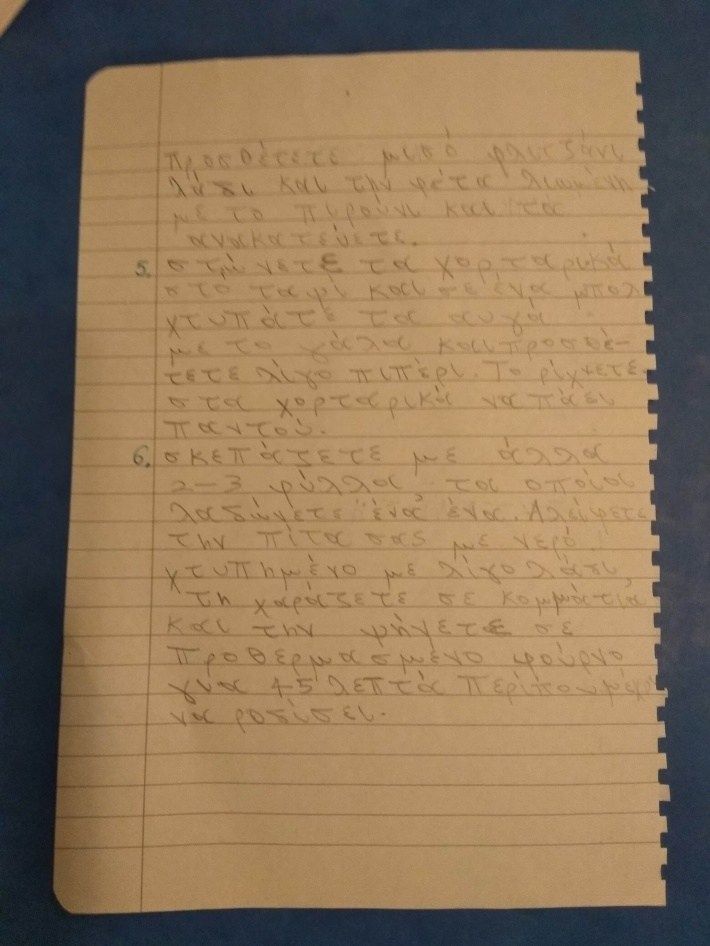 προσθέτετε μισό φλιτζάνι
λάδι και την φέτα λιωμένη
με το πιρούνι και τα
ανακατεύετε.
5. στρώνετε τα χορταρικά
στο ταψί και σε ένα μπολ
χτυπάτε τα αυγά
με το γάλα και προσθέ-
τετε λίγο πιπέρι. Το ρίχνετε
στα χορταρικά να πάει
παντού.
6. σκεπάζετε με άλλα
2-3 φύλλα τα οποία
λαδώνετε ένα ένα. Αλείφετε
την πίτα σας με νερό
χτυπημένο με λίγο λάδι,
τη χαράζετε σε κομμάτια
και την ψήνετε σε
προθερμασμένο φούρνο
για 45 λεπτά περίπου μέχρι
να ροδίσει.